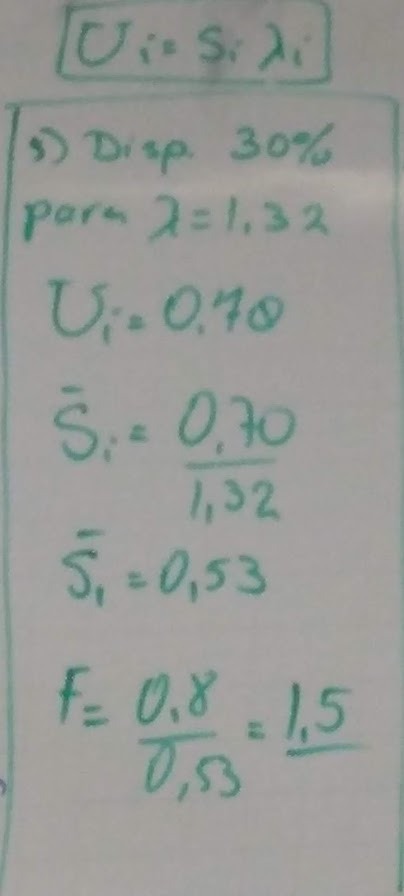 Ui = Si λi
3) Disp. 30%
para λ = 1,32
Ui = 0.70
S̄i = 0,70
1,32
S̄i = 0,53
F = 0,8 = 1,5
0,53